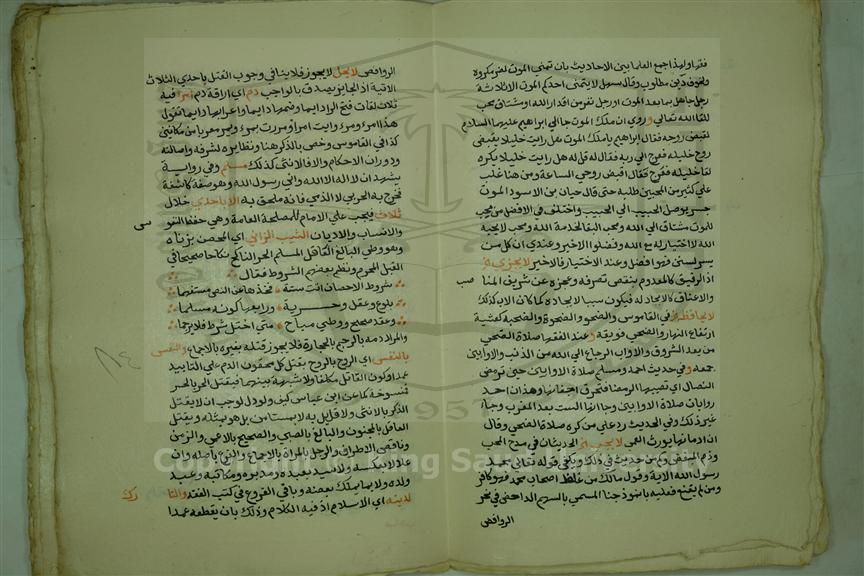 فقد اولهذا اجمع العلما بين الاحاديث بان تمنى الموت لضر مكروه
ولخوف دين مطلوب وقال سهل لا يتمنى احدكم الموت الا ثلاثة
رجل جاهل بما بعد الموت او رجل نفر من اقدار الله او مشتاق محب
للقا الله تعالى وروي ان ملك الموت جا الي ابراهيم عليهما السلام
ليقبض روحه فقال ابراهيم يا ملك الموت هل رايت خليلا يقبض
روح خليله فعرج الي ربه فقال له قل له هل رايت خليلا يكره
لقا خليله فعرج فقال اقبض روحي الساعة ومن هنا غلب
علي كثير من المحبين طلبه حتى قال حيان بن الاسود الموت
جسر يوصل الحبيب الي الحبيب واختلف في الافضل من محب
الموت مشتاق الي الله ومحب البقا لخدمة الله ومحب لا يحبه
الله لاختياره مع الله وفضلوا الاخير وعندي ان كل من
فهو افضل وعند الاختيار فالاخير لا يجزي
اذ الرقيق كالمعدوم بنقص تصرفه وعجزه عن شريف المنا صب
والاعتاق كالايجاد له فيكون سببا لايجاده كما كان الاب كذلك
لا يحافظ في القاموس والضحو والضحوة والضحية كعشية
ارتفاع النهار والضحى فويقه وعند الفقها صلاة الضحى
من بعد الشروق والاواب الرجاع الي الله من الذنب والاوابين
جمعه وفي حديث احمد ومسلم صلاة الاوابين حتى ترمض
الفصال اي تصيبها الرمضا فتحرق اخفافها وهذان احد
روايات صلاة الاوابين وجا انها الست بعد المغرب وجا
غير ذلك وفي الحديث رد على من كره صلاة الضحى وقال
ان ادمانها يورث العمى لا يحب الحديثان في مدح المحب
وذم المبغض وكم من حديث في ذلك ويكفي قوله تعالى محمد
رسول الله الاية وقول مالك من غلظ اصحاب محمد فهو كافر
ومن لم يقنع فعليه بانموذجنا المسمي بالسهم الداحض في نحر
الروافض
الروافض لا يحل لا يجوز فلا ينافي وجوب القتل باحدي الثلاث
الاتية اذ الجايز يصدق بالواجب دم اي اراقة دم امرء فيه
ثلاث لغات فتح الرا دايما وضمها دايما واعرابها دايما تقول
هذا امرء ومرء ورايت امرا ومررت بمرء ومرء معربا من مكانين
كذا في القاموس وخص بالذكر هنا ونظايره لشرفه واصالته
ودوران الاحكام والا فالانثى كذلك مسلم وفي رواية
يشهد ان لا اله الا الله واني رسول الله وهو صفة كاشفة
فخرج به الحربي لا الذمي فانه ملحق به الا باحدي خلال
ثلاث فيجب علي الامام للمصلحة العامة وهي حفظ النفو س
والانساب والاديان الثيب الزاني اي المحصن بزناه
وهو وطي البالغ العاقل المسلم الحر الناكح نكاحا صحيحا في
القبل المحرم ونظم بعضهم الشروط فقال
شروط الاحصان اتت ستة فخذها عن النص مستفهما
بلوغ وعقل وحرية ورابعها كونه مسلما
وعقد صحيح ووطئ مباح متى اختل شرط فلا يرجما
والمراد منه بالرجم بالحجارة فلا يجوز قتله بغيره بالاجماع والنفس
بالنفس اي الروح بالروح بقتل كل محقون الدم علي التابيد
عمدا وكون القاتل مكلفا ولا شبهة بينهما فيقتل الحر بالحر
فنسوخة كما عن ابن عباس كيف ولو دل لوجب ان لا يقتل
الذكر بالانثى ولا قايل به لا يستامن بل هو بمثله ويقتل
العاقل بالمجنون والبالغ بالصبي والصحيح بالاعمي والزمن
وناقص الاطراف والرجل بالمراة بالاجماع والفرع باصله وان
علا لا بعكسه ولا سيد بعبده ومدبره ومكاتبه وعبد
ولده ولا بما يملك بعضه وباقي الفروع في كتب الفقه والتا رك
لدينه اي الاسلام اذ فيه الكلام وذلك بان يقطعه عمدا
٨٤
Copyright © King Saud University
1957